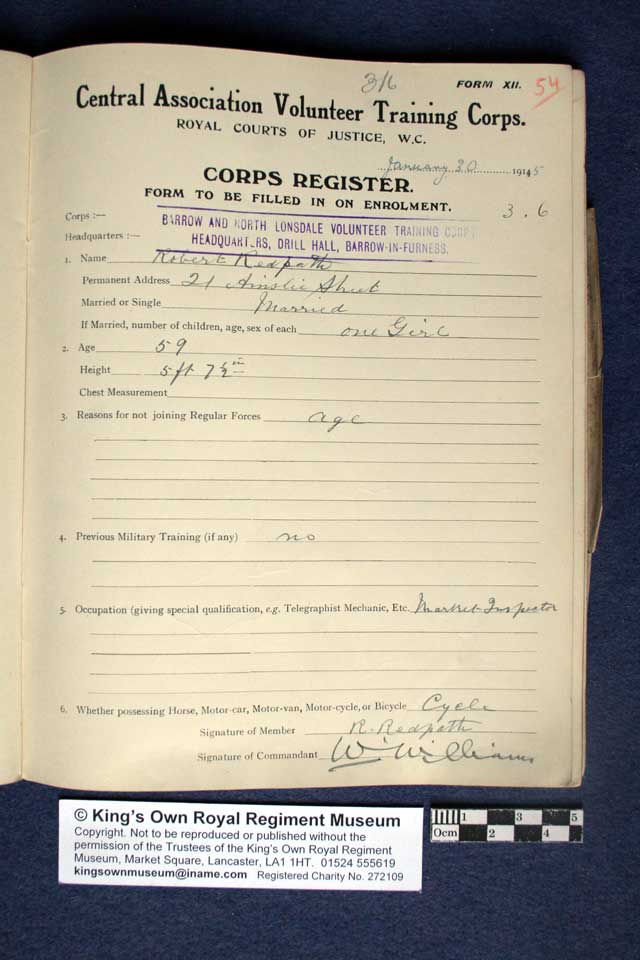 3/6
FORM XII. 54
Central Association Volunteer Training Corps.
ROYAL COURTS OF JUSTICE, W.C.
January 30 1915
CORPS REGISTER.
FORM TO BE FILLED IN ON ENROLMENT. 3.6
Corps :—
BARROW AND NORTH LONSDALE VOLUNTEER TRAINING CORPS
Headquarters :—
HEADQUARTERS, DRILL HALL, BARROW-IN-FURNESS.
1. Name Robert Redpath
Permanent Address 21 Ainslie Street
Married or Single Married
If Married, number of children, age, sex of each one Girl
2. Age 59
Height 5 ft 7½ in
Chest Measurement
3. Reasons for not joining Regular Forces age
4. Previous Military Training (if any) no
5. Occupation (giving special qualification, e.g. Telegraphist Mechanic, Etc. Market Inspector
6. Whether possessing Horse, Motor-car, Motor-van, Motor-cycle, or Bicycle Cycle
Signature of Member R. Redpath
Signature of Commandant W. Williams
© King's Own Royal Regiment Museum
Copyright. Not to be reproduced or published without the
permission of the Trustees of the King's Own Royal Regiment
Museum, Market Square, Lancaster, LA1 1HT. 01524 555619
kingsownmuseum@iname.com Registered Charity No. 272109
1 3 5
0cm 2 4